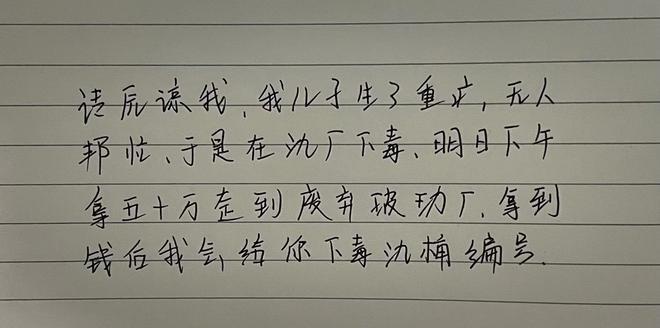 请原谅我,我儿子生了重病,无人
帮忙、于是在氿厂下毒、明日下午
拿五十万走到废弃玻功厂、拿到
钱后我会给你下毒氿桶编号.